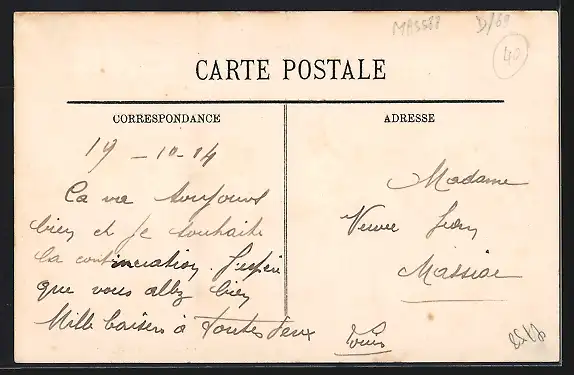 MASSER D/60
40
CARTE POSTALE
CORRESPONDANCE
ADRESSE
19-10-14
Ca va toujours
bien et je souhaite
la continuation. J'espère
que vous allez bien
Mille baisers à toutes deux
Louis
Madame
Veuve
Massiac